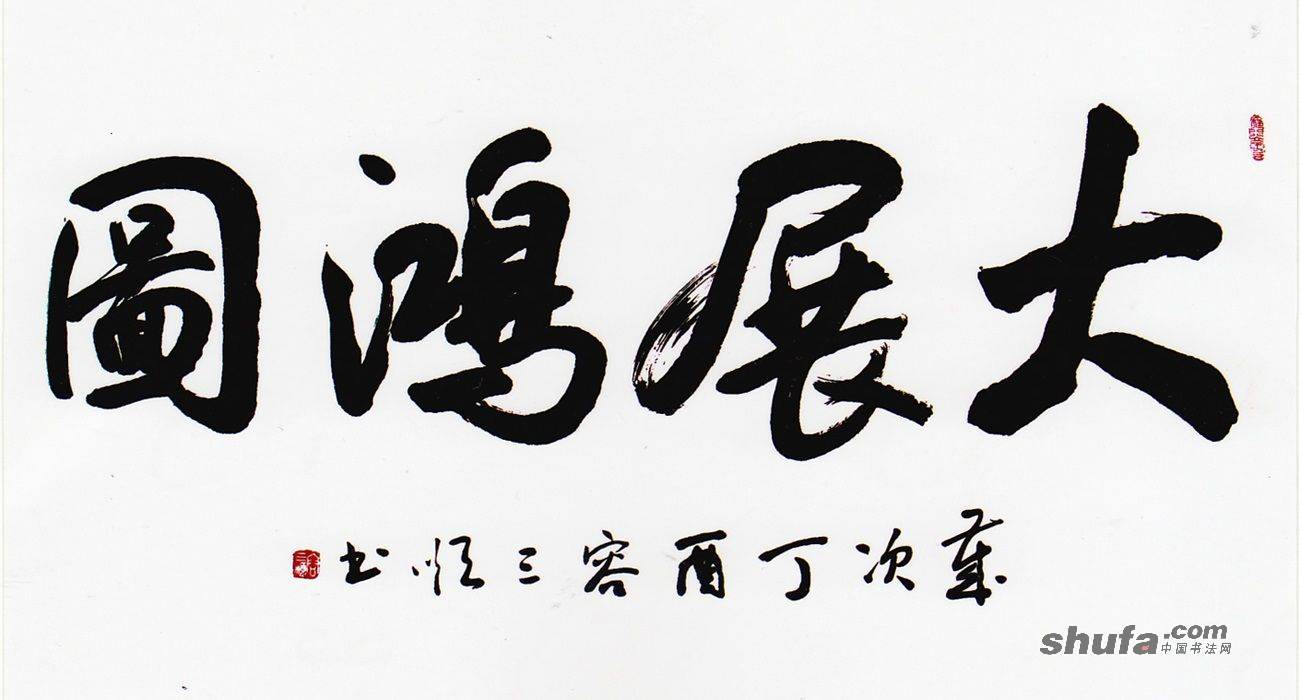 大展鴻圖
歲次丁酉容三順书
shufa.com
中国书法网